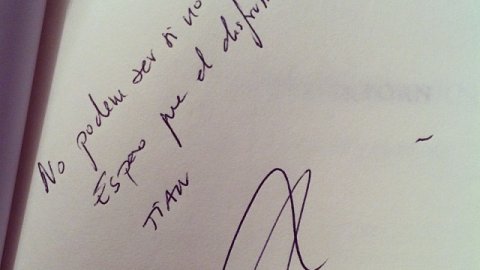 No podem ser si no
Espero que el disfru
TIAN